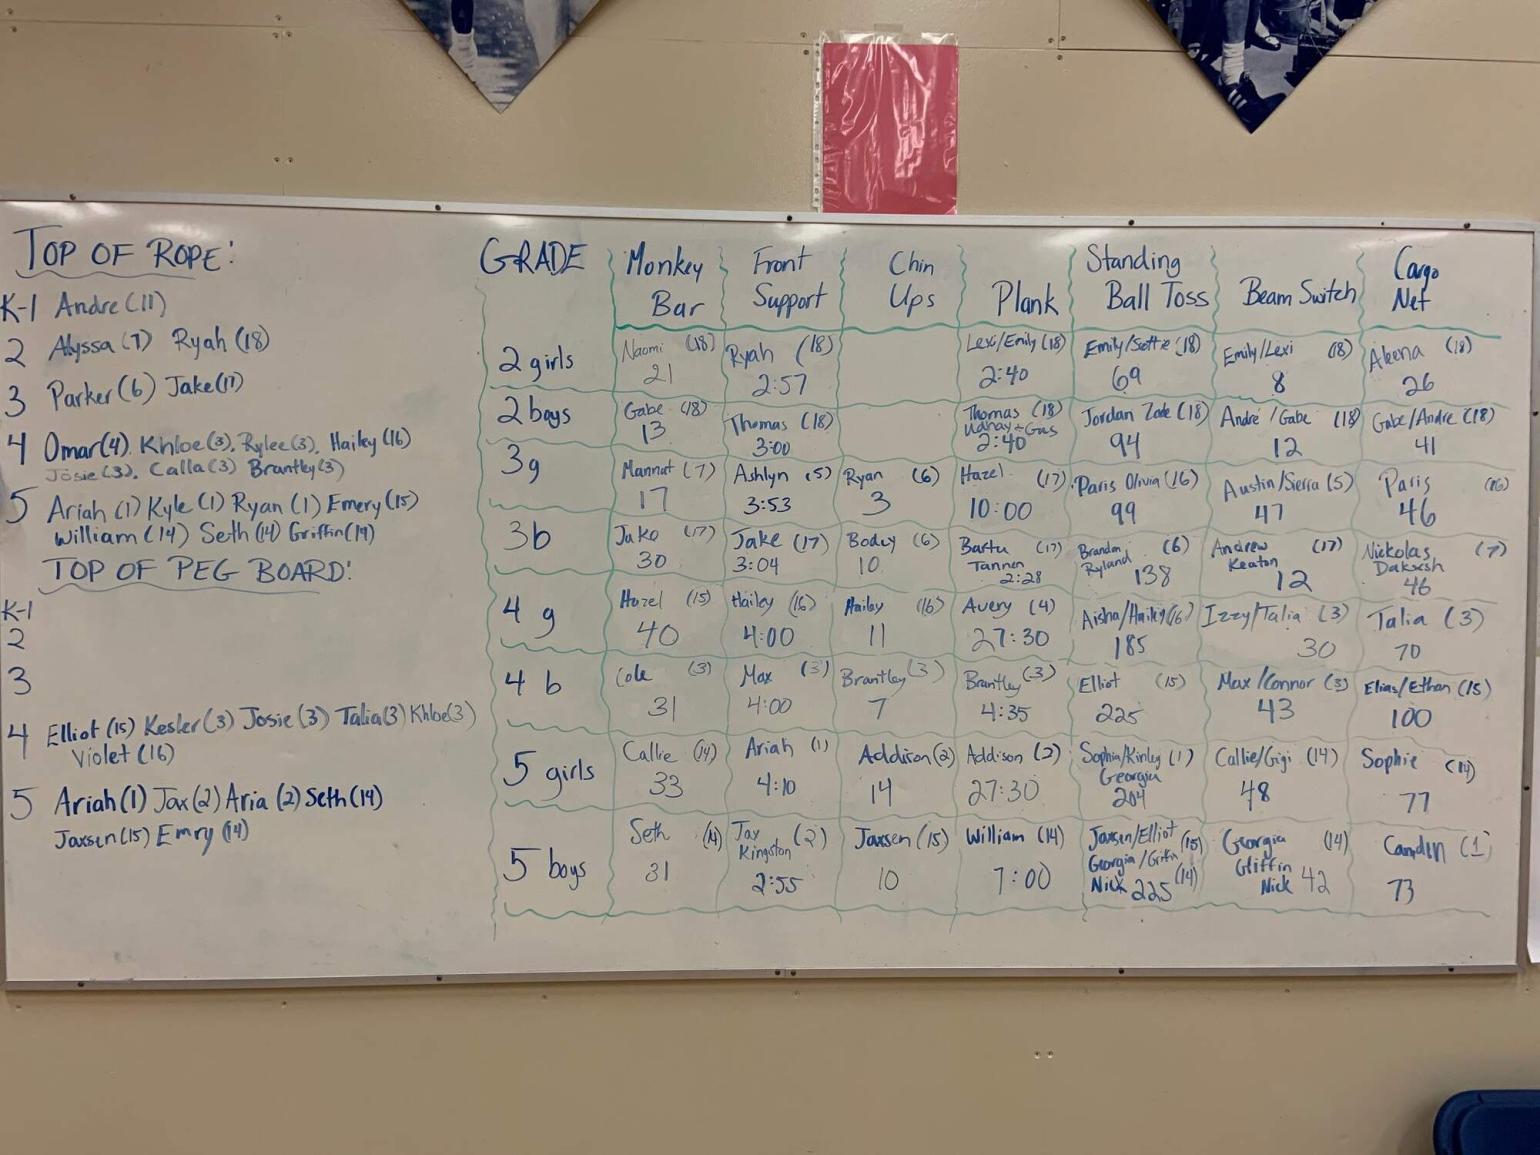 TOP OF ROPE:
K-1 Andre (11)
2 Alyssa (7) Ryah (18)
3 Parker (6) Jake (17)
4 Omar (4) Khloe (3), Rylee (3), Hailey (16)
Josie (3), Calla (3) Brantley (3)
5 Ariah (1) Kyle (1) Ryan (1) Emery (15)
William (14) Seth (14) Griffin (14)
TOP OF PEG BOARD:
K-1
2
3
4 Elliot (15) Kesler (3) Josie (3) Talia (3) Khloe (3)
Violet (16)
5 Ariah (1) Jax (2) Aria (2) Seth (14)
Jaxsen (15) Emry (14)
GRADE
Monkey
Bar
Front
Support
Chin
Ups
Plank
Standing
Ball Toss
Beam Switch
Cargo
Net
2 girls
Naomi (18)
21
Ryah (18)
2:57
Lexi/Emily (18)
2:40
Emily/Sottie (18)
69
Emily/Lexi (18)
8
Akena (18)
26
2 boys
Gabe (18)
13
Thomas (18)
3:00
Thomas (18)
+ Gus
2:40
Jordan Zade (18)
94
Andre /Gabe (18)
12
Gabe/Andre (18)
41
3g
Mannat (7)
17
Ashlyn (5)
3:53
Ryan (6)
3
Hazel (17)
10:00
Paris Olivia (16)
99
Austin/Sierra (5)
47
Paris (16)
46
3b
Jake (17)
30
Jake (17)
3:04
Bodey (6)
10
Bartu (17)
Tannen
2:28
Brandon (6)
Ryland
138
Andrew (17)
Keaton
12
Nickolas (7)
Daksxsh
46
4 g
Hazel (15)
40
Hailey (16)
4:00
Hailey (16)
11
Avery (4)
27:30
Aisha/Hailey (16)
185
Izzy/Talia (3)
30
Talia (3)
70
4 b
Cole (3)
31
Max (3)
4:00
Brantley (3)
7
Brantley (3)
4:35
Elliot (15)
225
Max /Connor (3)
43
Elias/Ethan (15)
100
5 girls
Callie (14)
33
Ariah (1)
4:10
Addison (2)
14
Addison (2)
27:30
Sophia/Kinley (1)
Georgia
204
Callie/Gigi (14)
48
Sophie (14)
77
5 boys
Seth (14)
31
Jax (2)
Kingston
2:55
Jaxsen (15)
10
William (14)
7:00
Jaxsen/Elliot (15)
Georgia /Griffin
Nick 225 (14)
Georgia (14)
Griffin
Nick 42
Camden (1)
73